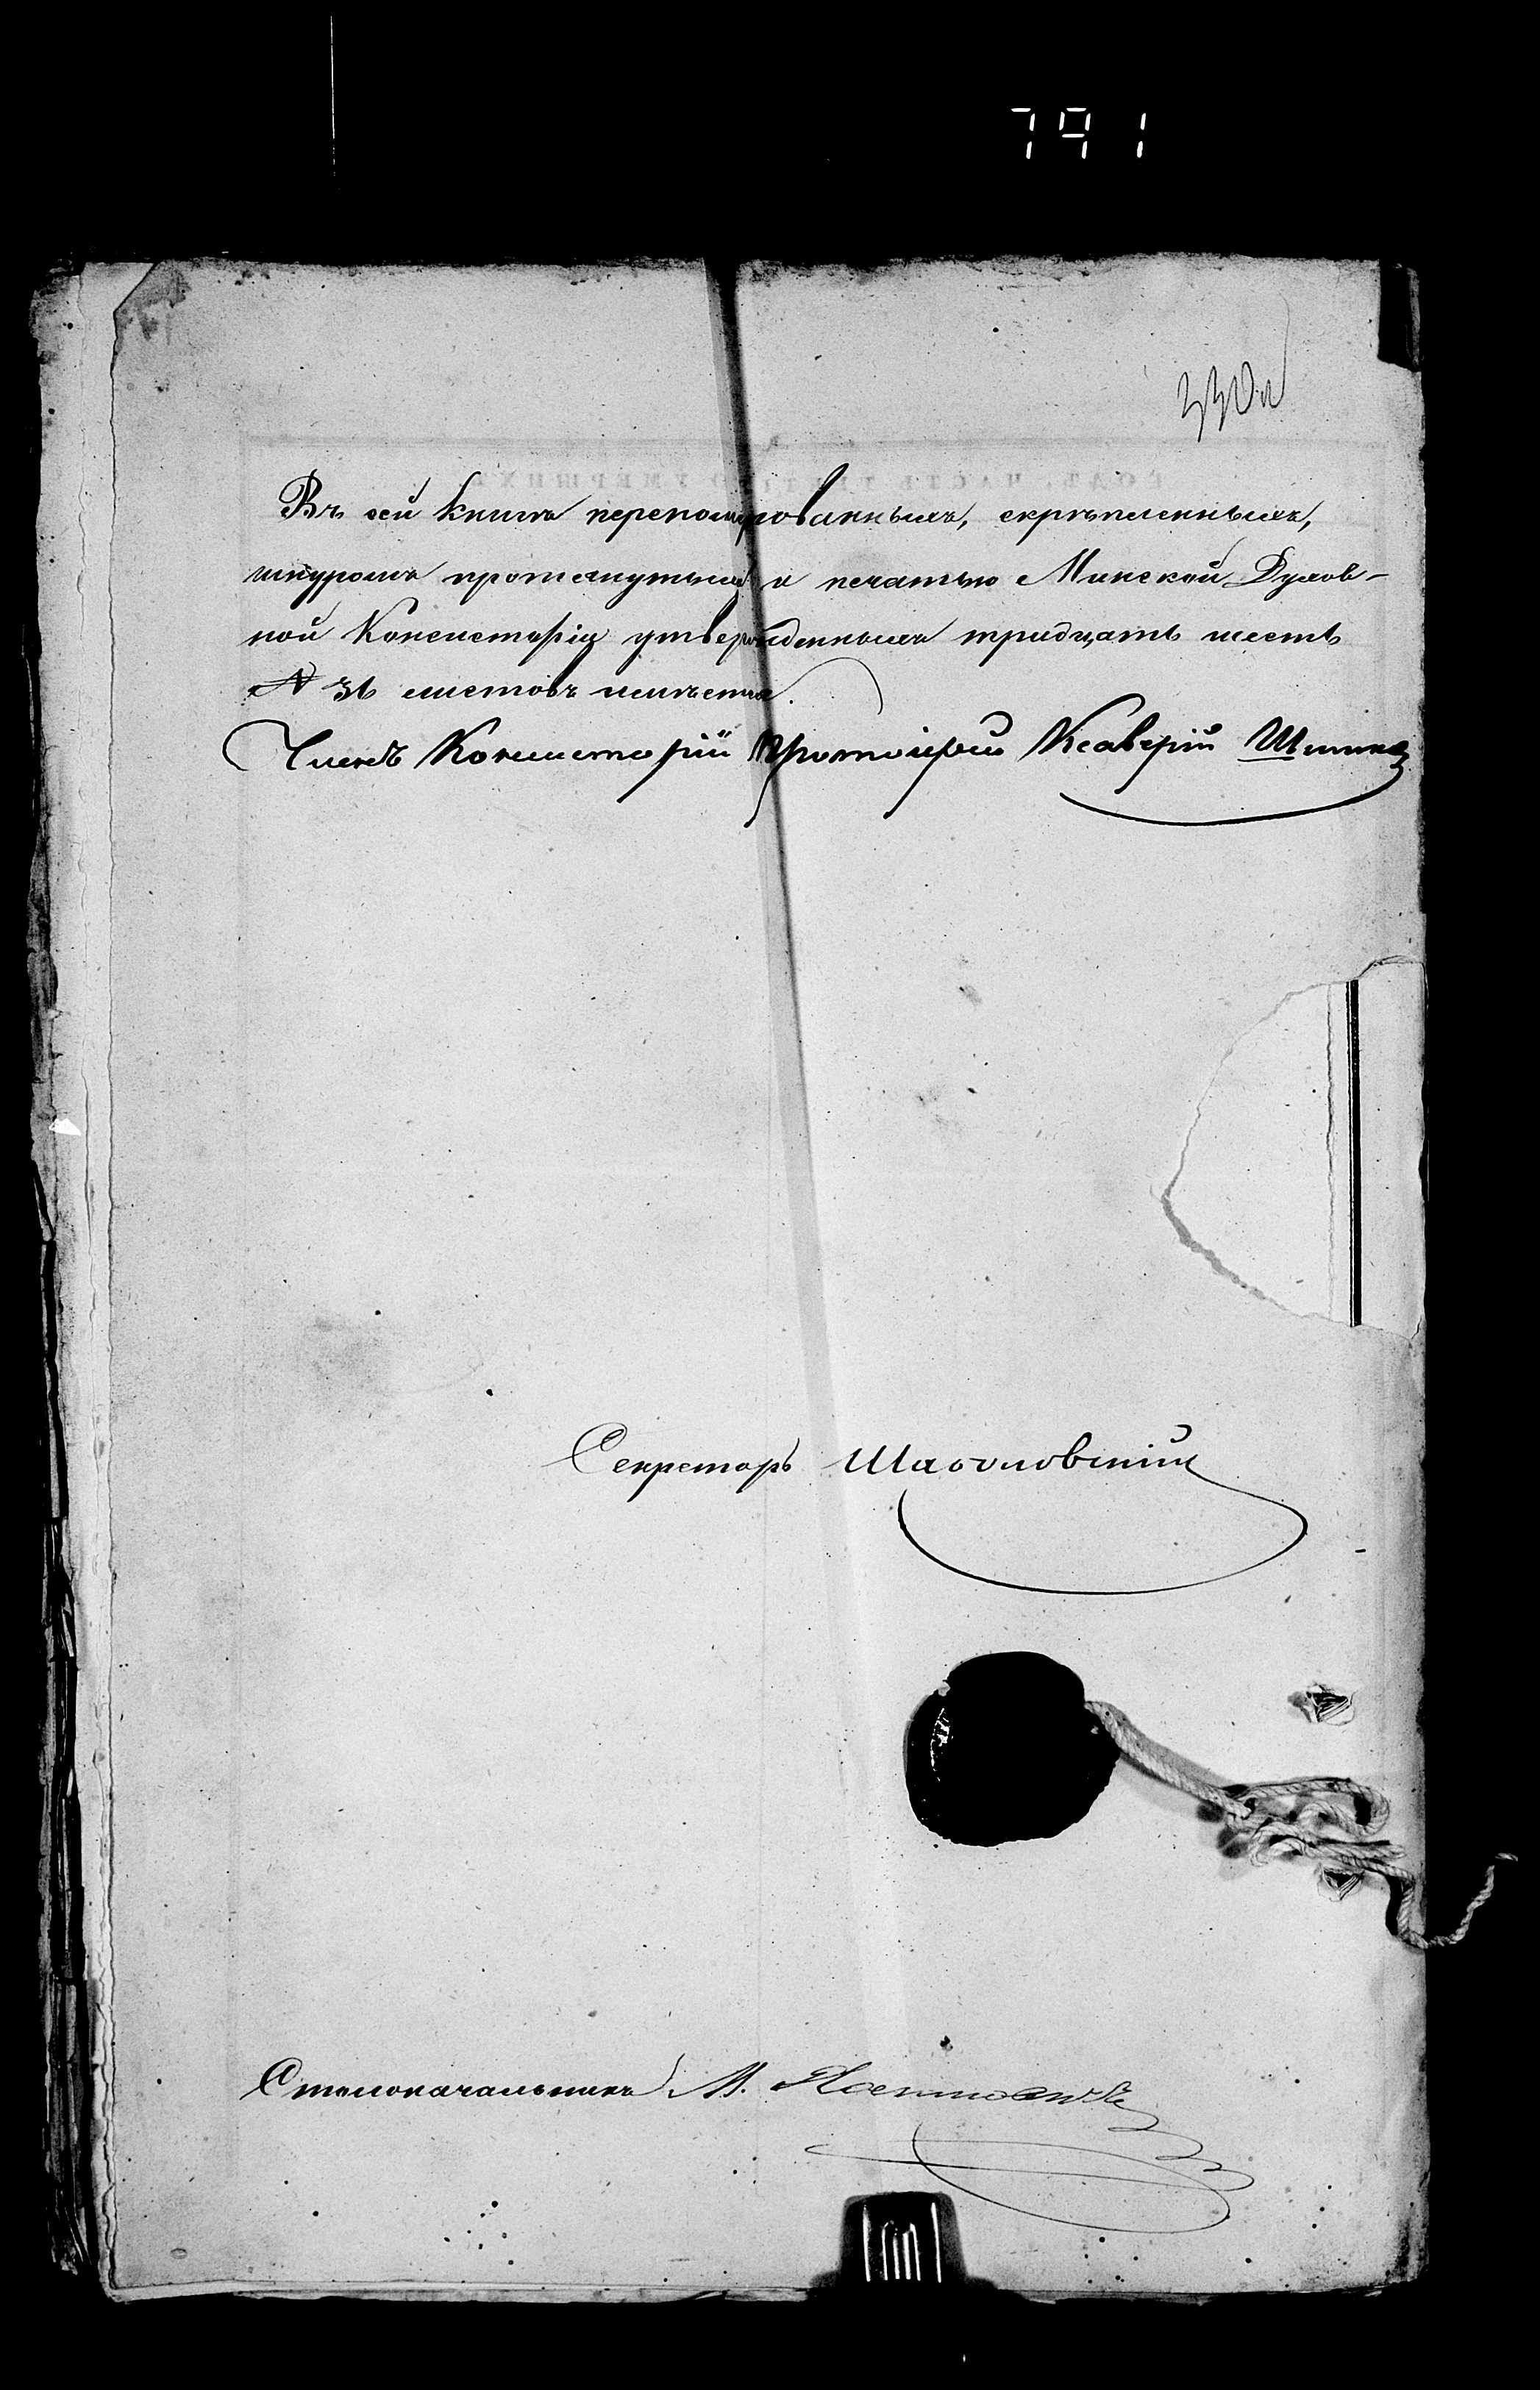 791
330
Въ сей книгѣ перенумерованныхъ, скрѣпленныхъ,
шнуромъ протянутыхъ и печатью Минской Духов-
ной Консисторіи утвержденныхъ тридцать шесть
№ 36 листовъ имѣется.
Членъ Консисторіи Протоіерей Ксаверій
Секретарь
Столоначальникъ М.